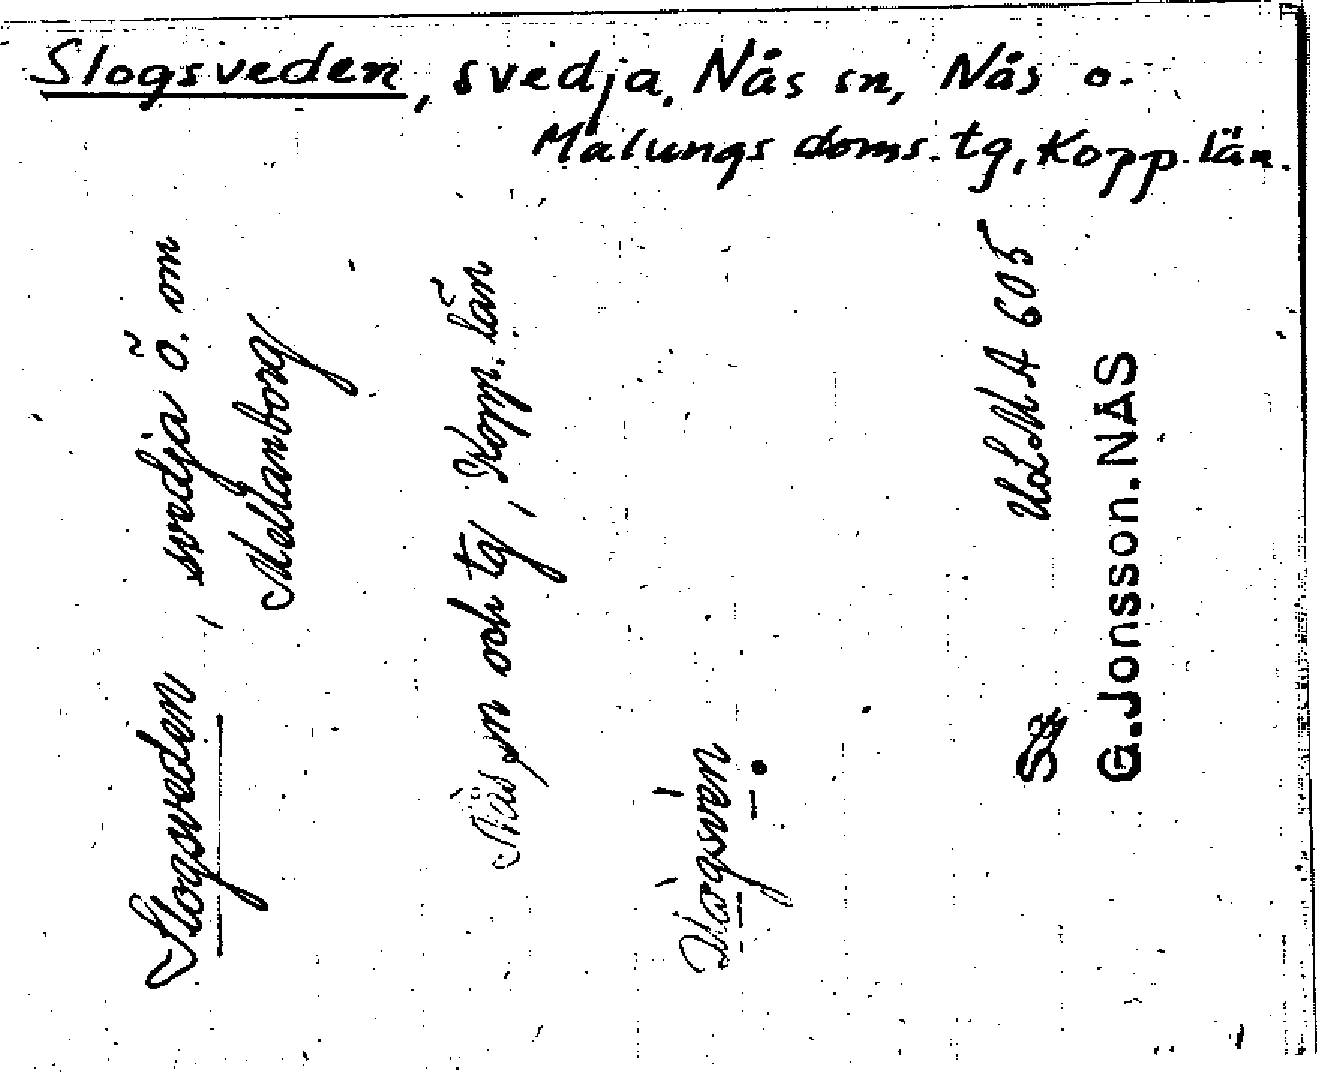 Slogsveden, svedja, Nås sn, Nås o.
Malungs doms. tg, Kopp. län.
Slogsveden, svedja ö. om
Mellanborg
Nås sn och tg, Kopp. län
ULMA 605
G. Jonsson. NÅS